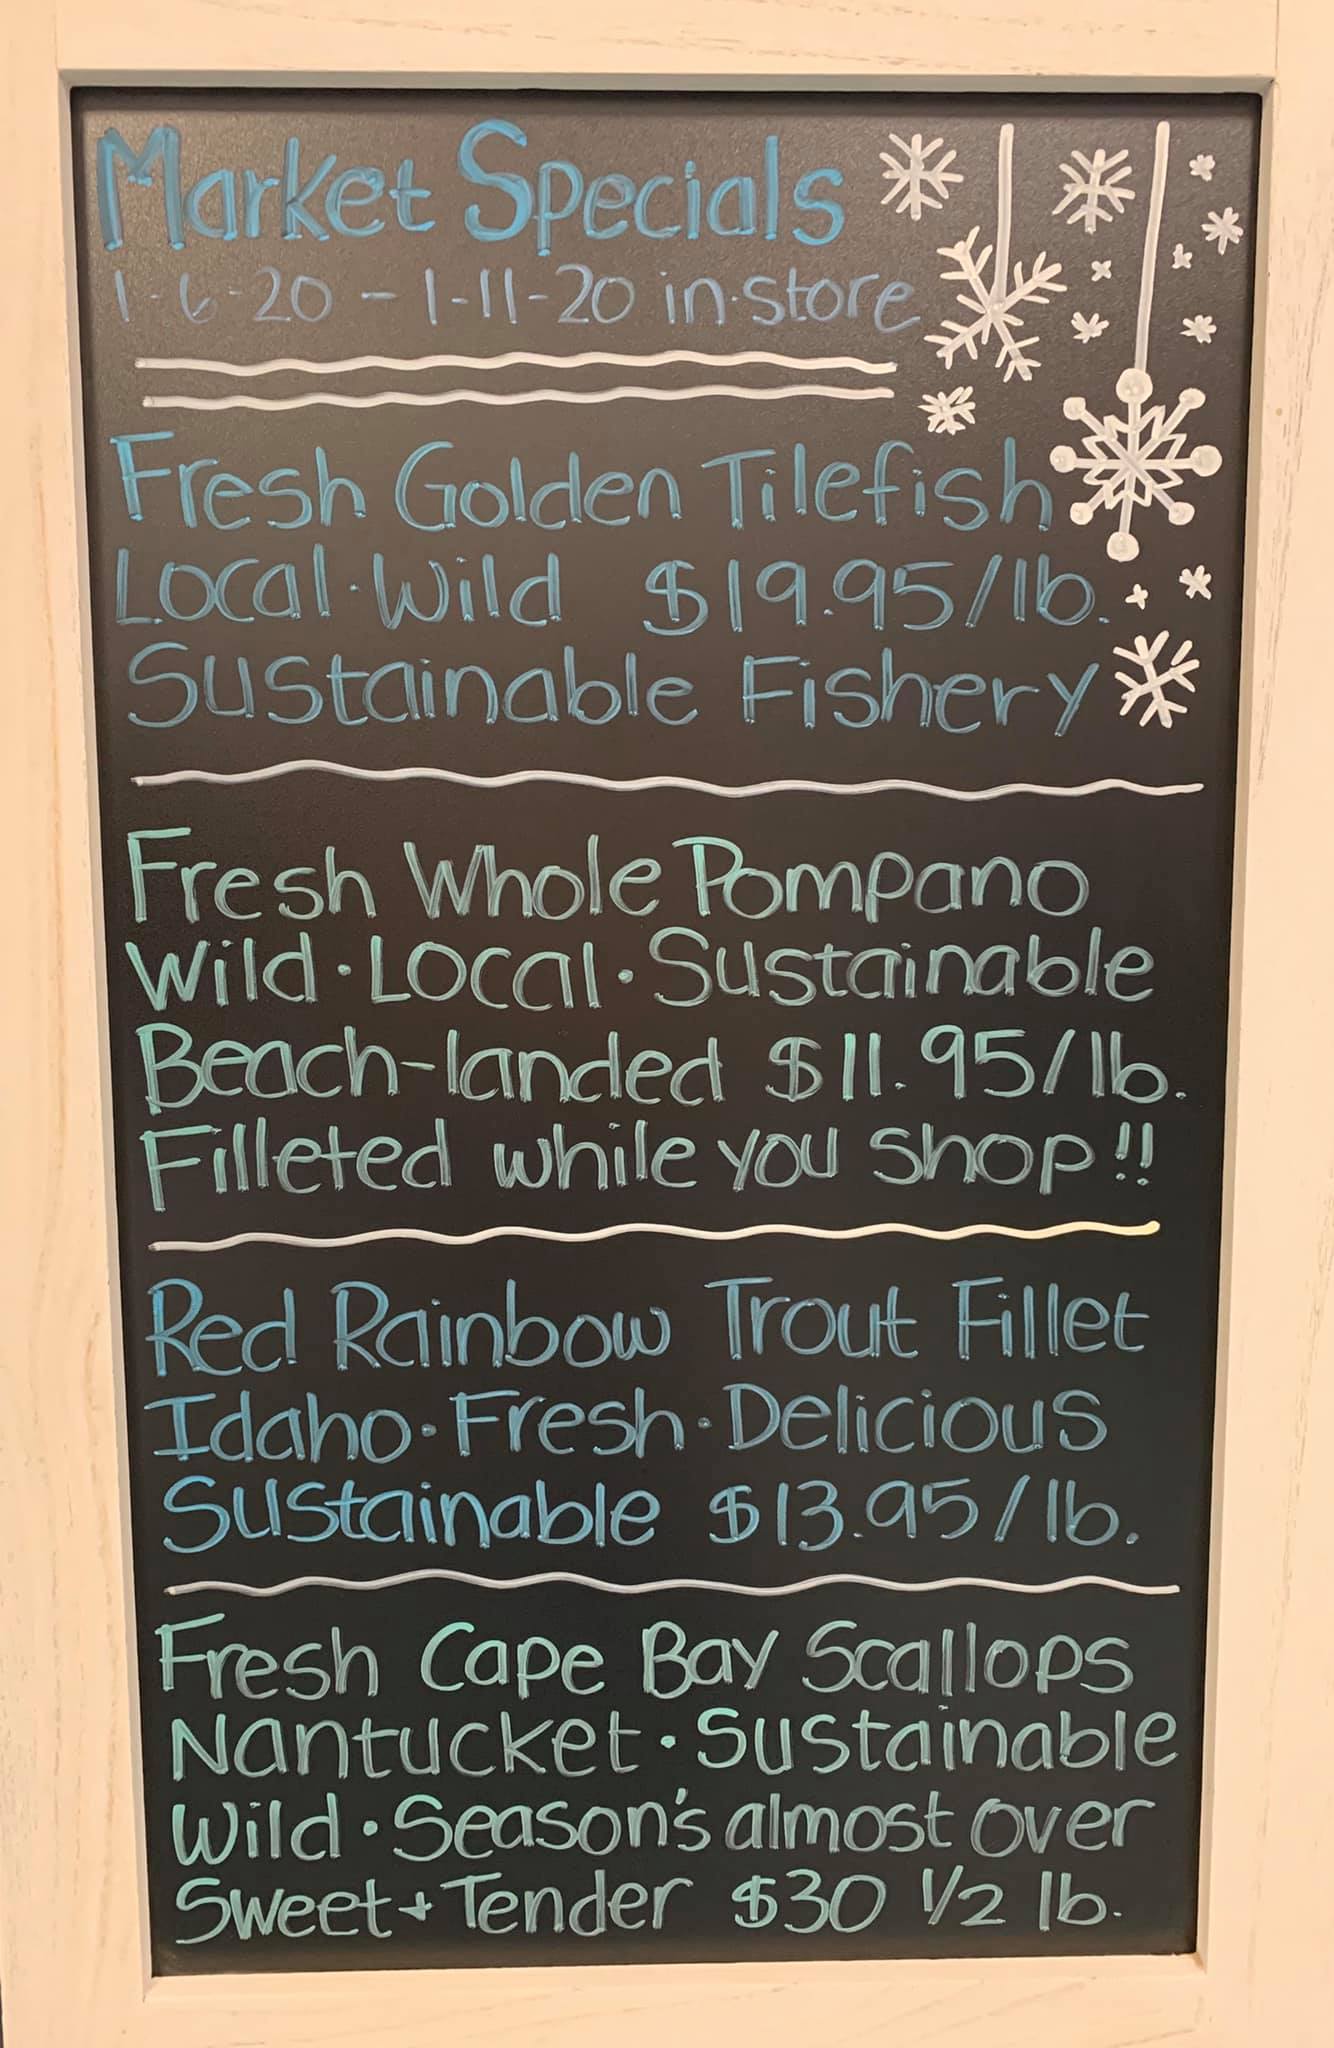 Market Specials
1-6-20 - 1-11-20 in-store
Fresh Golden Tilefish
Local·Wild $19.95/lb.
Sustainable Fishery
Fresh Whole Pompano
Wild·Local·Sustainable
Beach-landed $11.95/lb.
Filleted while you shop!!
Red Rainbow Trout Fillet
Idaho·Fresh·Delicious
Sustainable $13.95/lb.
Fresh Cape Bay Scallops
Nantucket·Sustainable
Wild·Season's almost over
Sweet + Tender $30 1/2 lb.